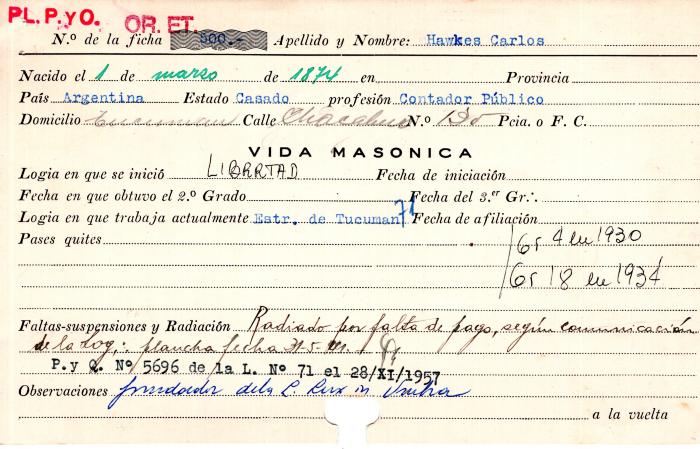 PL. P. y O.
OR. ET.
N.º de la ficha 500.- Apellido y Nombre: Hawkes Carlos
Nacido el 1 de marzo de 1874 en Provincia
País Argentina Estado Casado profesión Contador Público
Domicilio Tucuman Calle N.º Pcia. o F. C.
VIDA MASONICA
Logia en que se inició LIBERTAD Fecha de iniciación
Fecha en que obtuvo el 2.º Grado Fecha del 3.er Gr∴
Logia en que trabaja actualmente Estr. de Tucuman 71 Fecha de afiliación
Pases quites Gr 4 en 1930
Gr 18 en 1934
Faltas-suspensiones y Radiación Radiado por falta de pago, según comunicación
de la Log∴ plancha fecha 31-5-
P. y Q. Nº 5696 de la L. Nº 71 el 28/XI/1957
Observaciones fundador de la L.
a la vuelta